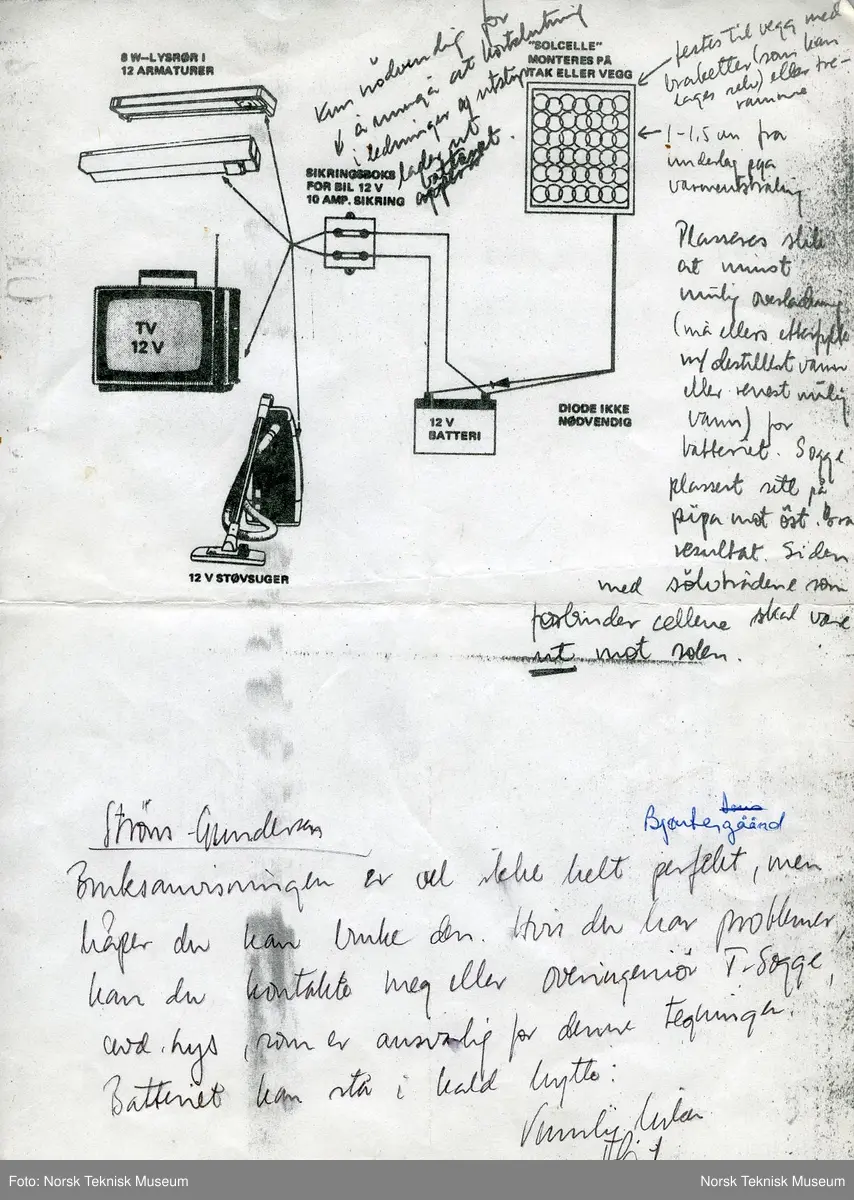 8 W-LYSRØR I
12 ARMATURER
Kun nödvendig for
å unngå at kortslutning
i ledninger og utstyr
lader ut
batteriet
"SOLCELLE"
MONTERES PÅ
TAK ELLER VEGG
festes til vegg med
braketter (som kan
lages selv) eller tre-
ramme
1-1,5 cm fra
underlag pga
varmeutstråling
SIKRINGSBOKS
FOR BIL 12 V
10 AMP. SIKRING
TV
12 V
12 V
BATTERI
DIODE IKKE
NØDVENDIG
12 V STØVSUGER
Plasseres slik
at minst
mulig overladning
(må ellers etterfylle
m/ destillert vann
eller renest mulig
vann) for
batteriet. Sogge
plassert sitt på
pipa mot öst. Bra
resultat. Siden
med sölvtrådene som
forbinder cellene skal være
ut mot solen.
Ströms-Gundersen
Bruksanvisningen er vel ikke helt perfekt, men
håper du kan bruke den. Hvis du har problemer,
kan du kontakte meg eller overingeniør T. Sogge,
avd. hys, som er ansvarlig for denne tegningen.
Batteriet kan stå i kald hytte.
Vennlig hilsen
Foto: Norsk Teknisk Museum
Norsk Teknisk Museum